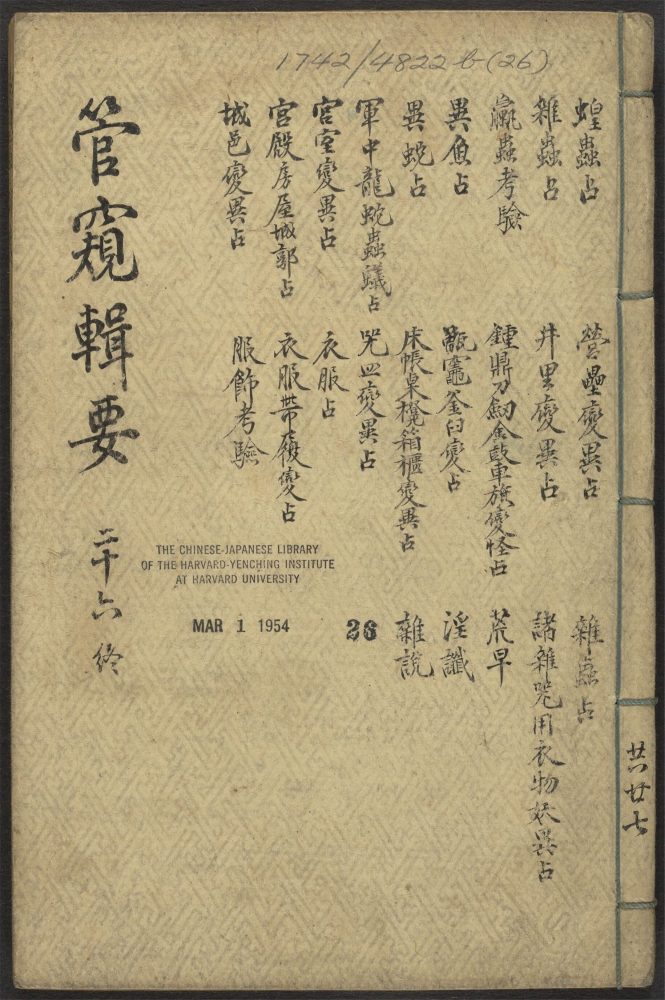 1742/4822 b (26)
蝗蟲占
雜蟲占
蠃蟲考驗
異魚占
異蛇占
軍中龍蛇蟲蟻占
宮室變異占
宮殿房屋城郭占
城邑變異占
營壘變異占
井里變異占
鍾鼎刀劒金鼓車旗變怪占
甑竈釜臼變占
床帳桌櫈箱櫃變異占
咒皿變異占
衣服占
衣服帶履變占
服飾考驗
雜蟲占
諸雜咒用衣物妖異占
荒旱
淫讖
雜說
26
管窺輯要
二十六 終
THE CHINESE-JAPANESE LIBRARY
OF THE HARVARD-YENCHING INSTITUTE
AT HARVARD UNIVERSITY
MAR 1 1954
共廿七